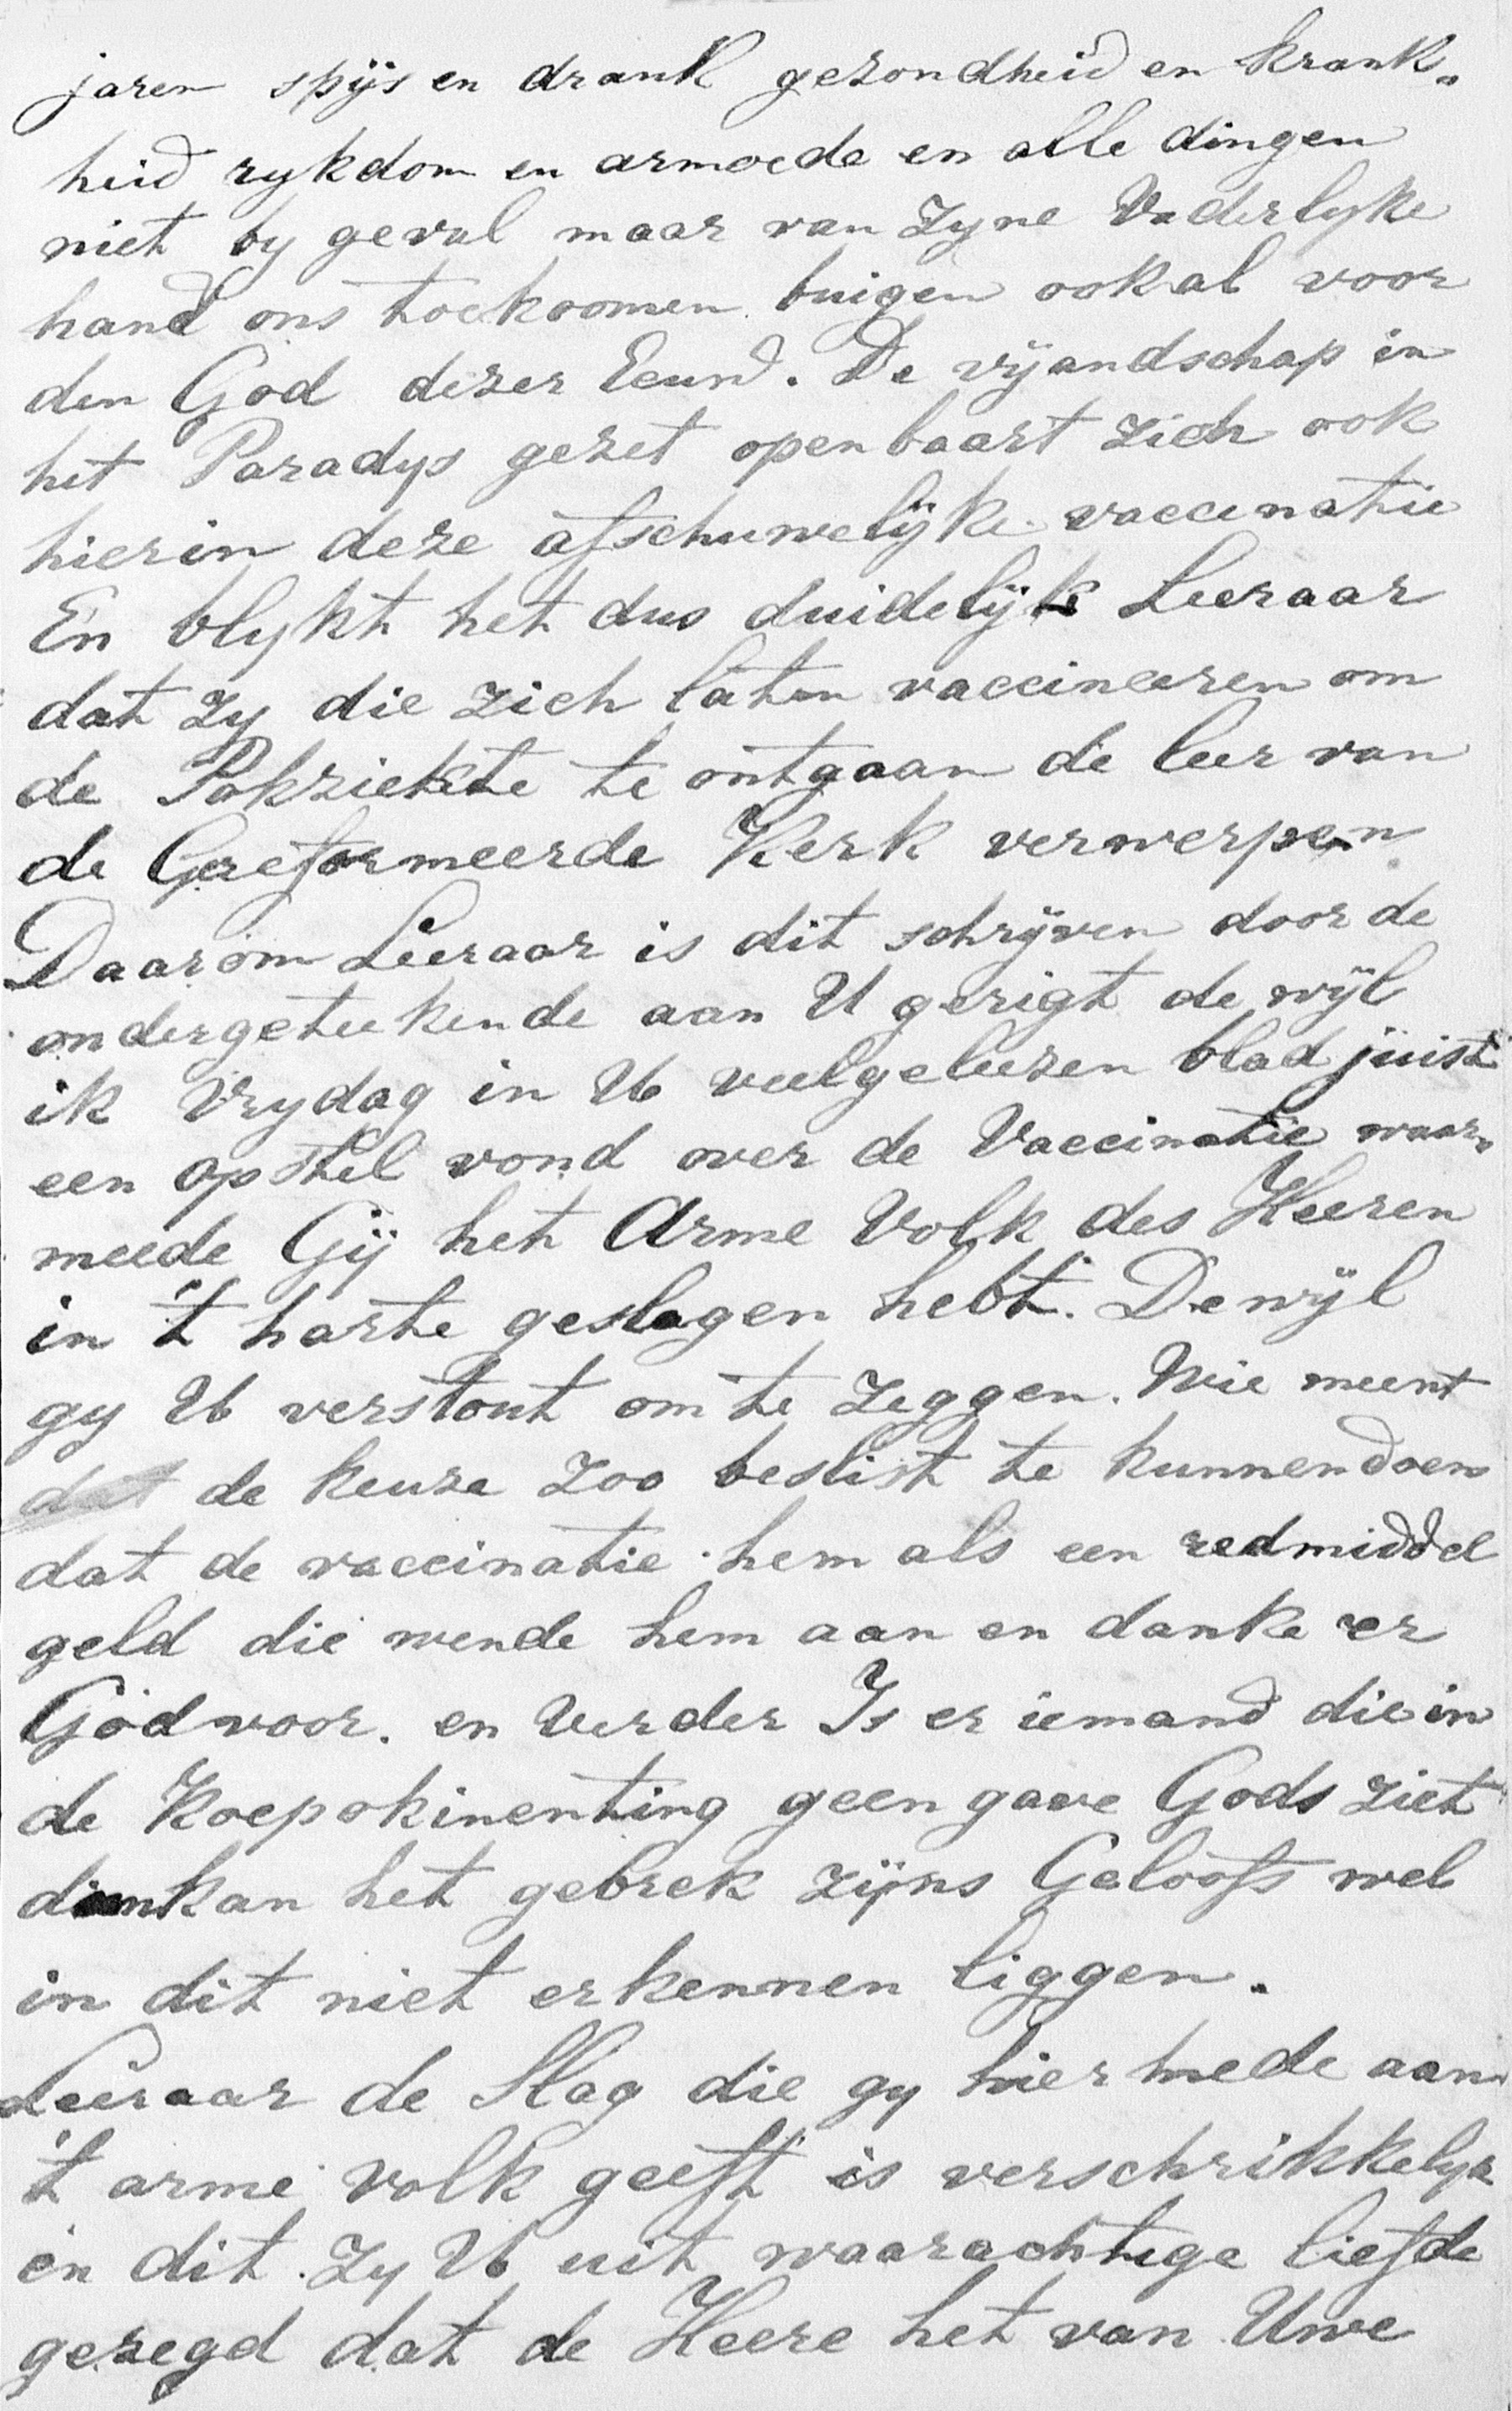 jaren spijs en drank gezondheid en krank„
heid rykdom en armoede en alle dingen
niet by geval maar van Zyne Vaderlyke
hand ons toekoomen buigen ook al voor
den God dezer Eeuw. De vijandschap in
het Paradys gezet openbaart zich ook
hierin deze afschuwelijke vaccinatie
En blykt het dus duidelijk Leeraar
dat Zy die Zich laten vaccineeren om
de Pokziekte te ontgaan de leer van
de Gereformeerde Kerk verwerpen
Daarom Leeraar is dit schrijven door de
ondergeteekende aan U gerigt de wijl
ik Vrydag in Uw veelgeleezen blad juist
een opstel vond over de Vaccinatie waar„
meede Gij het Arme Volk des Heeren
in 't harte geslagen hebt. Dewijl
gy U verstout om te Zeggen. Wie meent
dat de keuze Zoo beslist te kunnen doen
dat de vaccinatie hem als een redmiddel
geld die wende hem aan en danke er
God voor. en Verder Is er iemand die in
de Koepokinenting geen gave Gods ziet
dan kan het gebrek zijns Geloofs wel
in dit niet erkennen liggen.
Leeraar de Slag die gy hiermede aan
't arme volk geeft is verschrikkelyk
en dit Zy U uit waarachtige liefde
gezegd dat de Heere het van Uwe